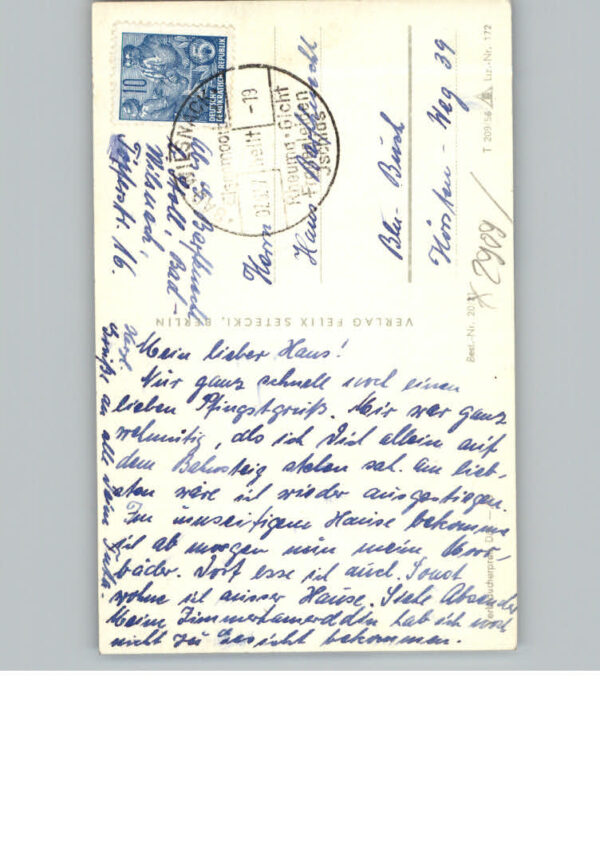 Mein lieber Haus!
Nur ganz schnell noch einen
lieben Pfingstgruß. Mir war ganz
wehmütig, als ich Dich allein auf
dem Bahnsteig stehen sah. Am lieb-
sten wäre ich wieder ausgestiegen.
Im umseitigem Hause bekomme
ich ab morgen nun meine Moor-
bäder. Dort esse ich auch. Sonst
wohne ich ausser Hause. Siehe Absender
Meine Zimmerkameradin hab ich noch
nicht zu Gesicht bekommen.
Herzl.
Grüße an all Deine
VERLAG FELIX SETECKI, BERLIN
10 5
DEUTSCHE
DEMOKRATISCHE REPUBLIK
BAD WILSNACK
Eisenmoor
heilt
-19
Rheuma · Gicht
Frauenleiden
Ischias
Abs. G.
Z. Bad-
Wilsnack,
16.
Herrn
Hans
Bln.- Buch
Hörsten - Weg 39
T 209/56 Liz.-Nr. 172
Best.-Nr. 20
x 2909/